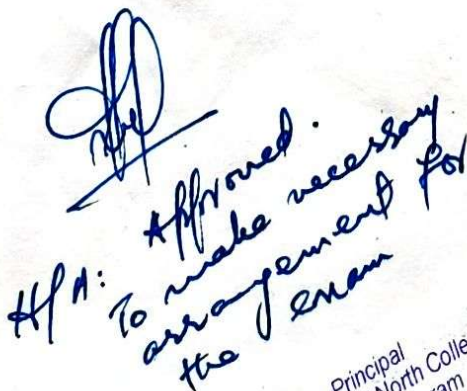 H/A: Approved.
To make necessary
arrangement for
the exam
Principal
North Colle